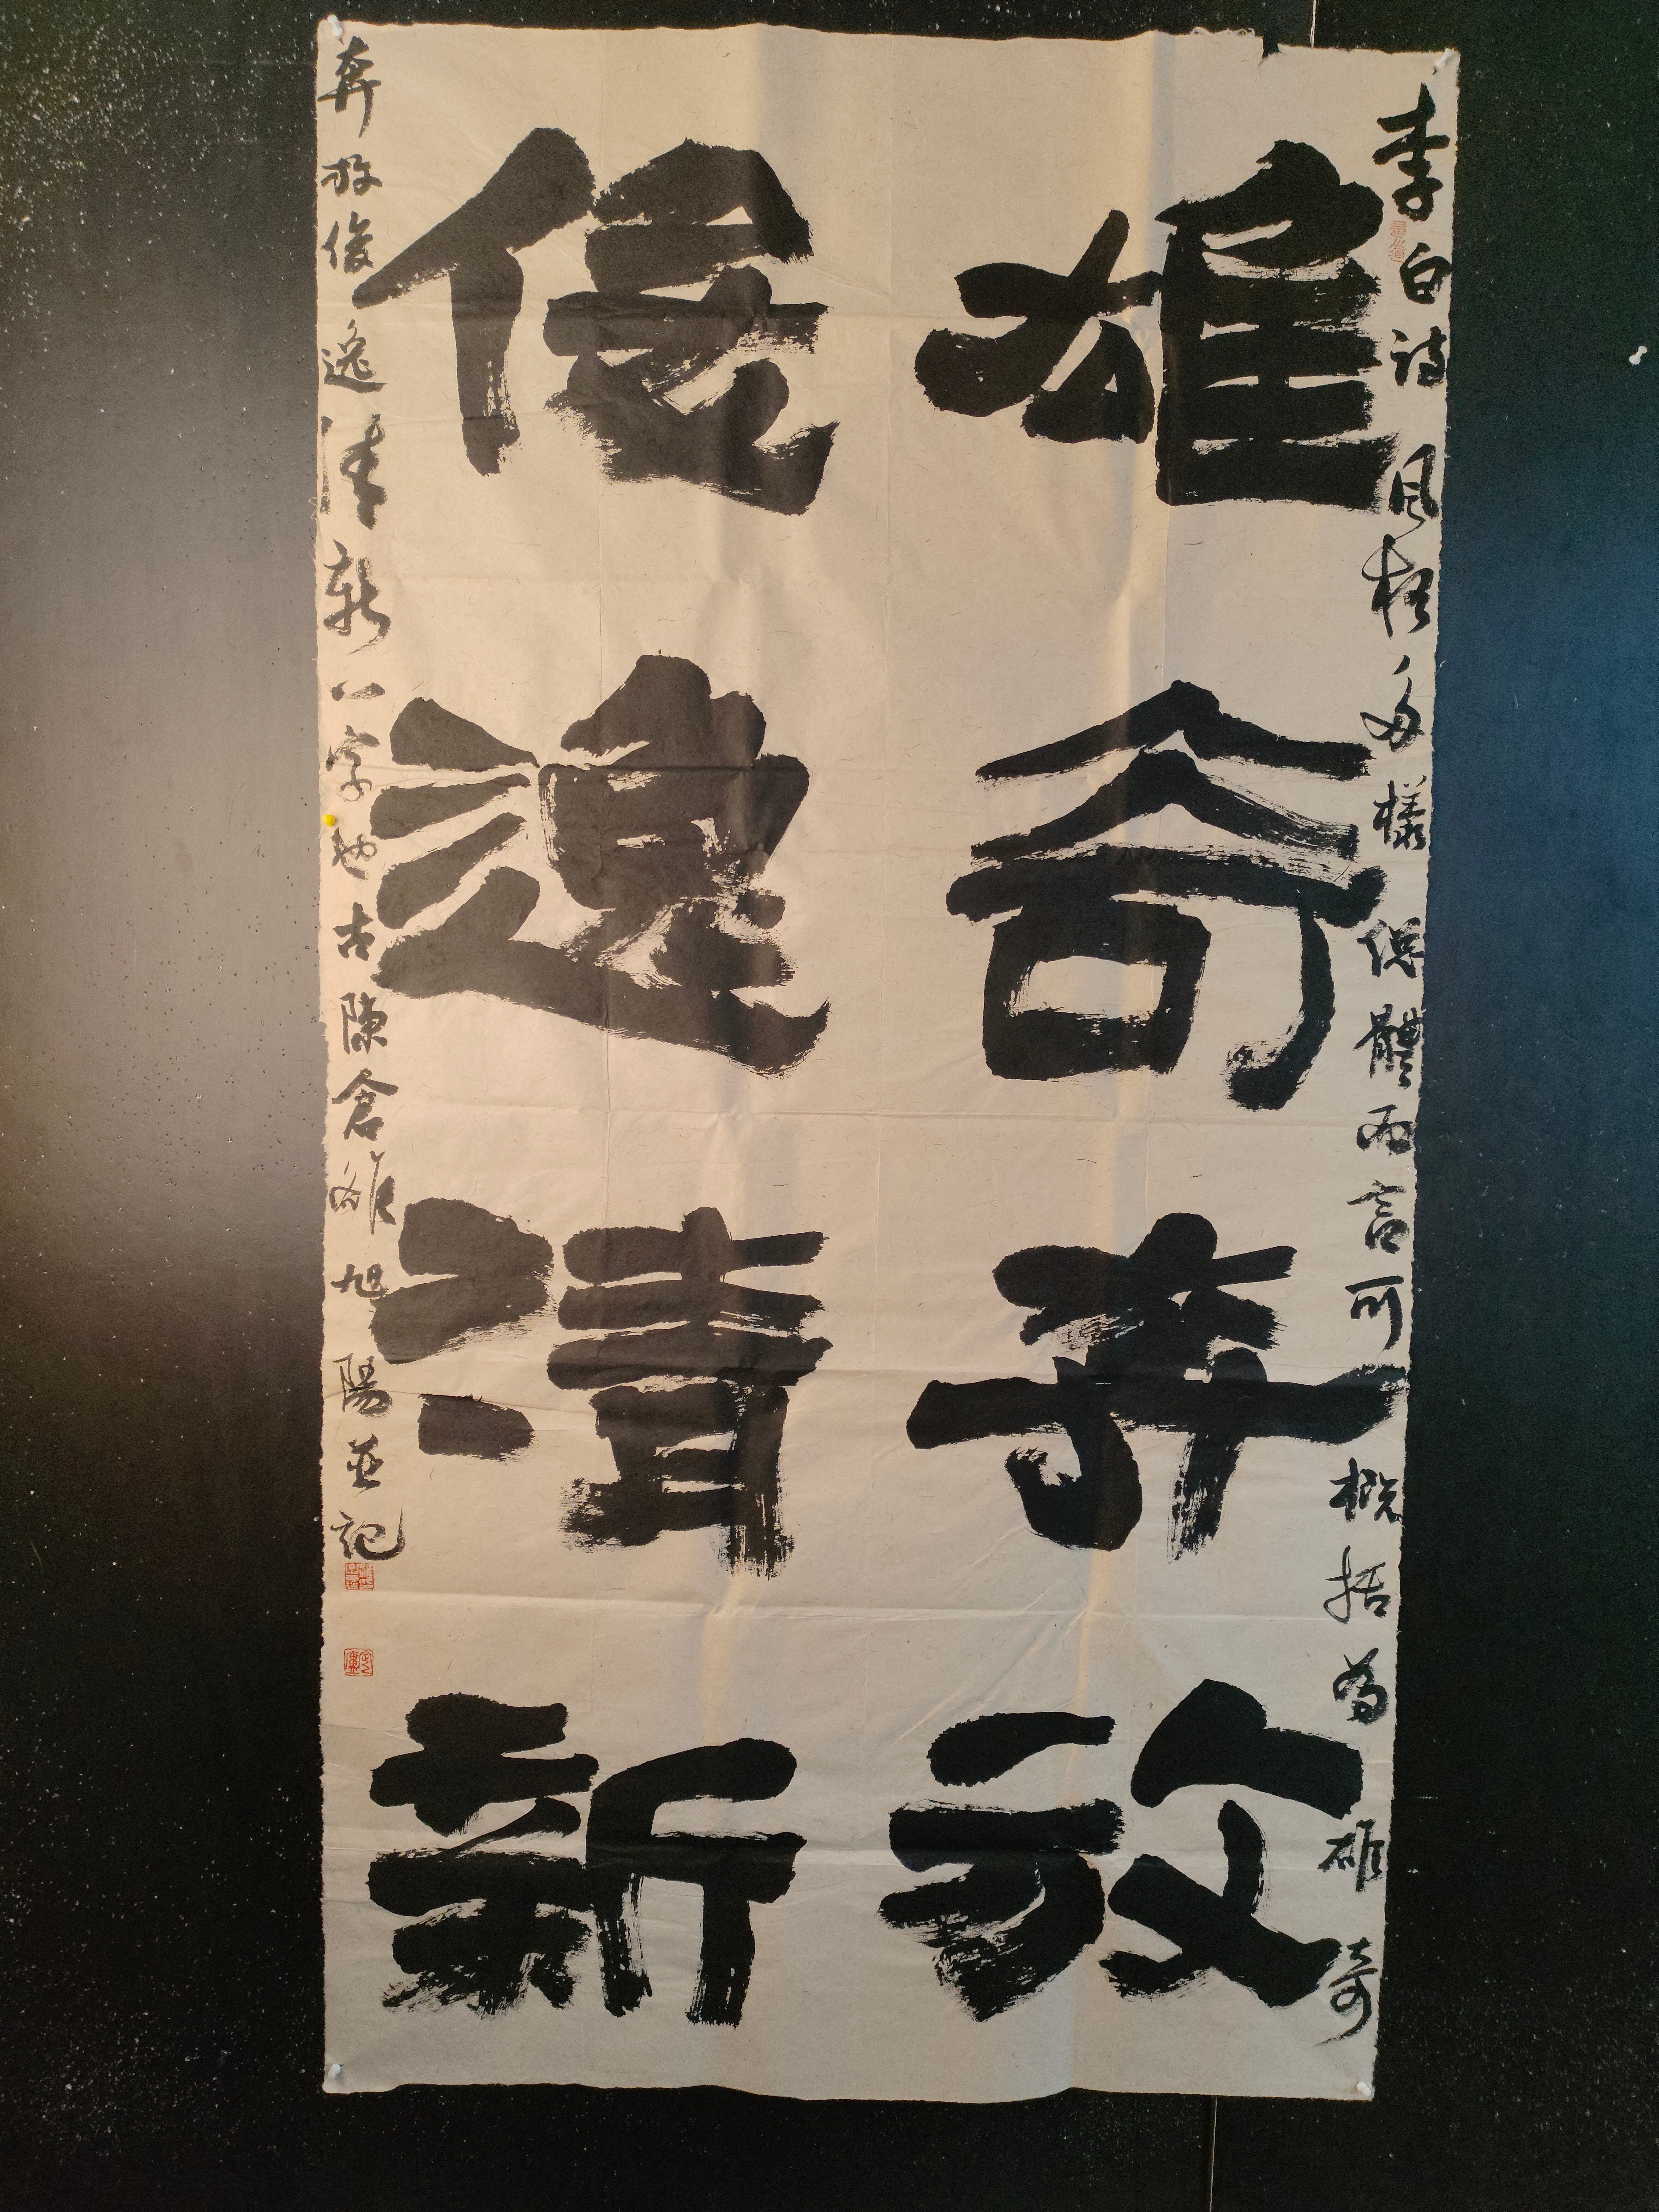 李白詩風格多樣總體而言可概括為雄奇
雄奇奔放
俊逸清新
奔放俊逸清新八字也古陳倉雒旭陽並記